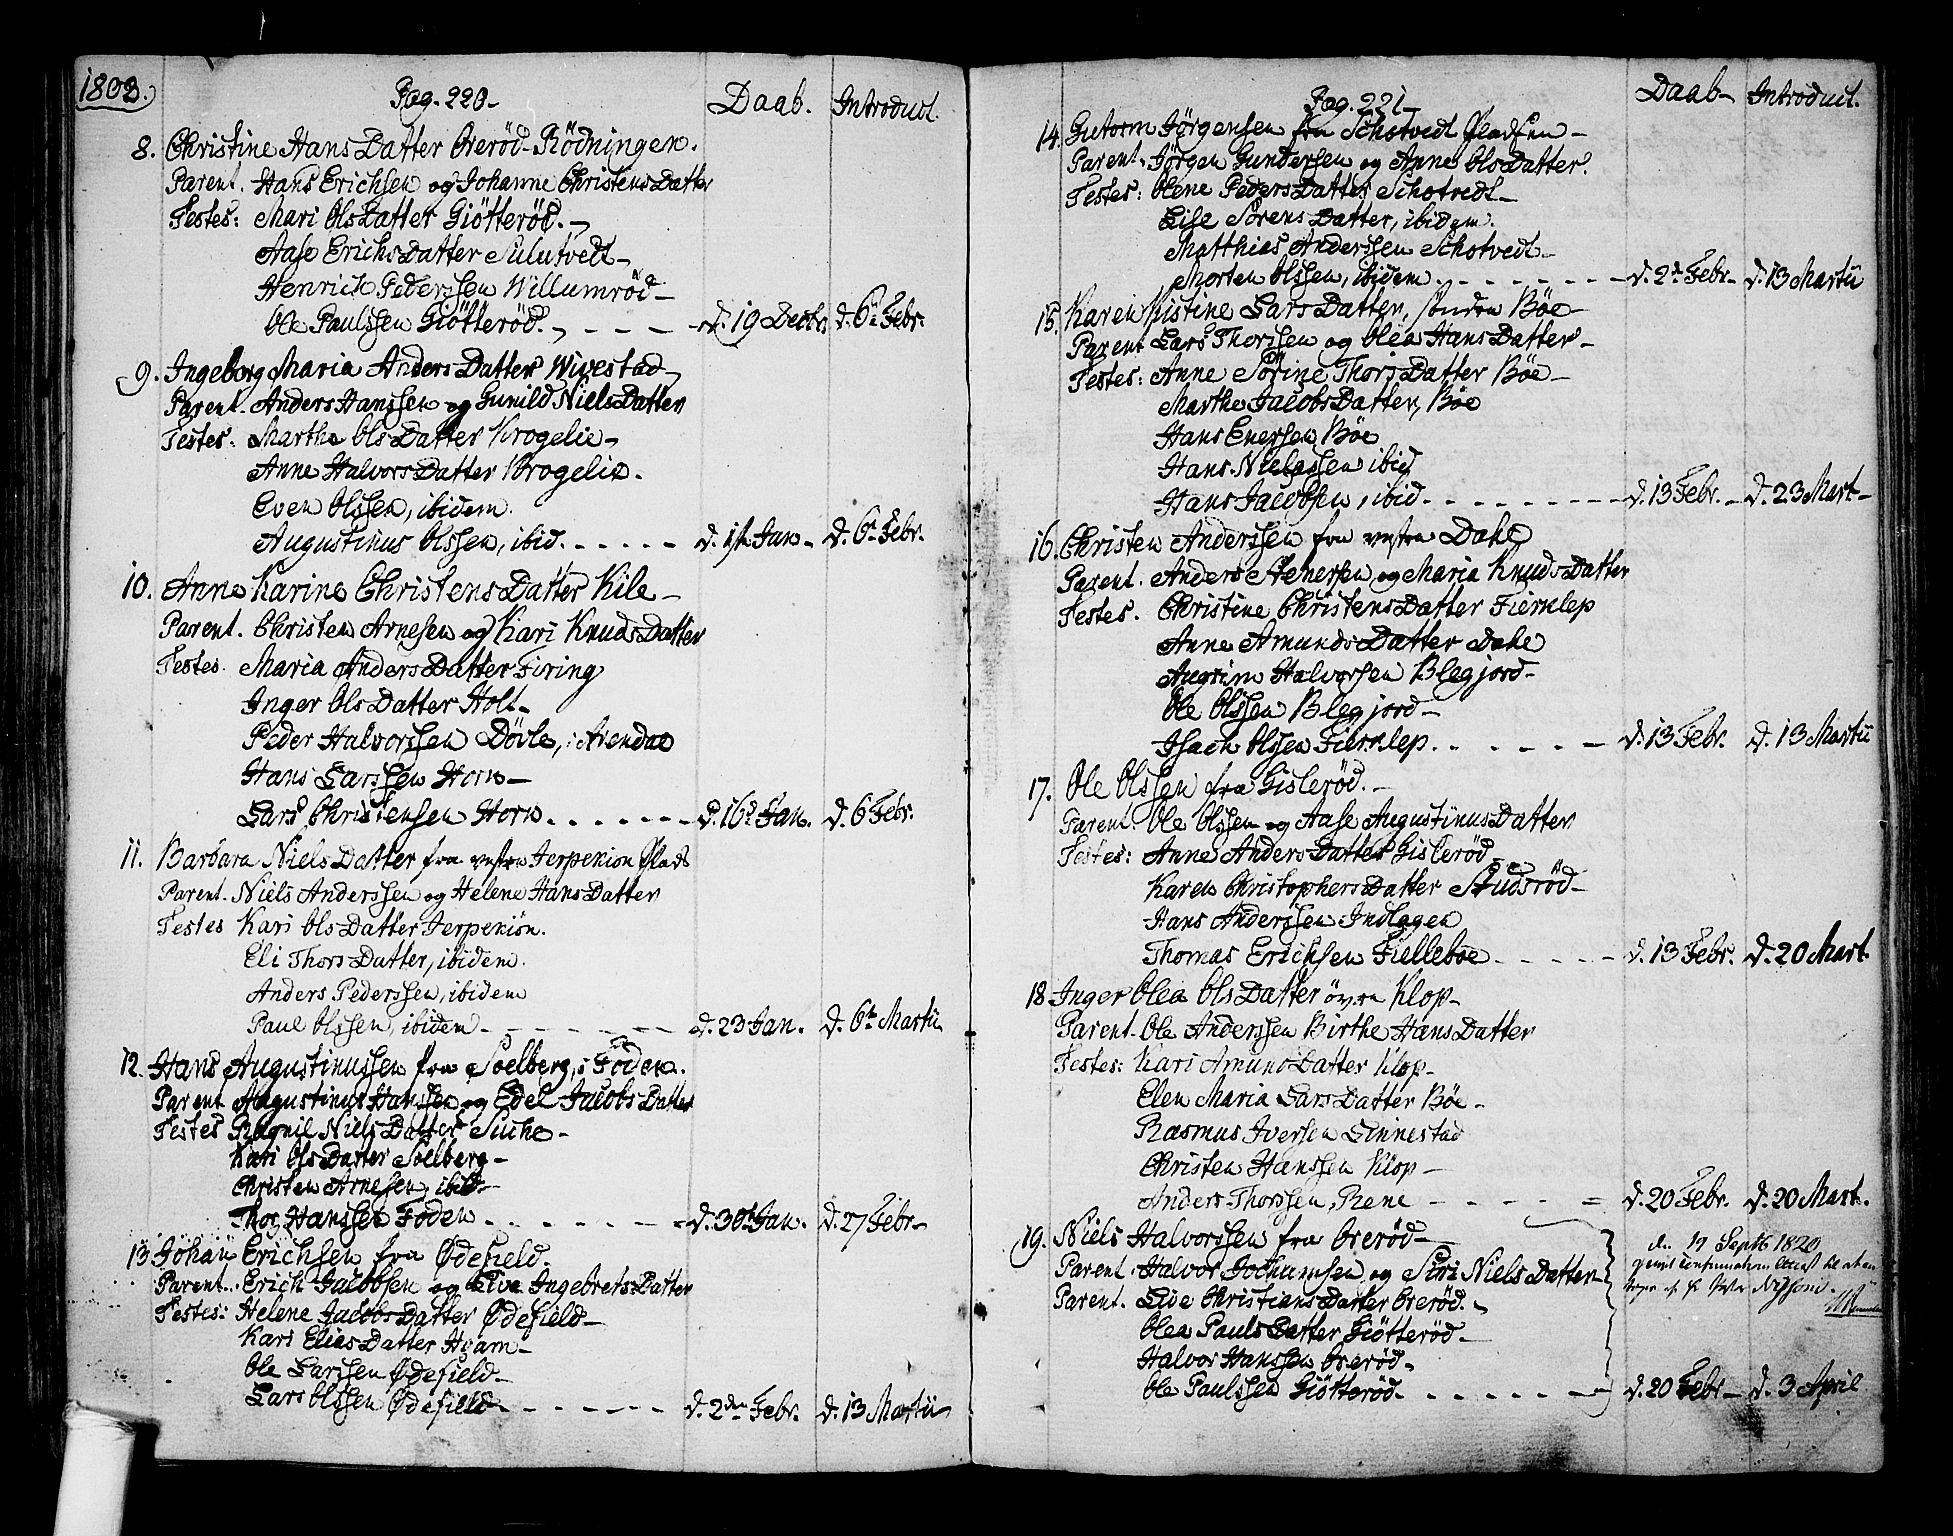 1803.
Pag. 220. Daab. Introduct.
8. Christine Hans Datter Órerød-Rödningen.
Parent. Hans Erichsen og Johanne Christens Datter
Testes: Mari Ols Datter Giötteröd.
Aase Erichs Datter Sulutvedt
Henrich Pederssen Willumröd
Ole Paulssen Giötteröd. d. 19 Decbr. d. 6 Febr.
9. Ingeborg Maria Anders Datter Wivestad
Parent. Anders Hanssen og Gunild Niels Datter
Testes. Marthe Ols Datter Krogelie
Anne Halvors Datter Krogelie.
Even Olssen, ibidem.
Augustinus Olssen, ibid. d. 1ste Jan. d. 6 Febr.
10. Anne Karine Christens Datter Kile
Parent. Christen Arnesen og Kari Knuds Datter
Testes. Maria Anders Datter Firing
Inger Ols Datter Holt
Peder Halvorssen Dövle, i Arendal
Hans Larssen Horn
Lars Christensen Horn. d. 16 Jan. d. 6 Febr.
11. Barbara Niels Datter fra vestre Jerpekiön Plads
Parent. Niels Anderssen og Helene Hans Datter
Testes Kari Ols Datter Jerpekiön.
Eli Thors Datter, ibidem.
Anders Pederssen, ibidem
Paul Olssen, ibidem d. 23 Jan. d. 6te Martii
12. Hans Augustinussen fra Soelberg, i Foden.
Parent Augustinus Hanssen og Edel Jacobs Datter
Testes Ragnil Niels Datter Suche
Kari Ols Datter Soelberg
Christen Arnesen, ibid.
Thor Hanssen Foden. d. 30 Jan. d. 27 Febr.
13 Johan Erichsen fra Ødefield.
Parent. Erich Jacobsen og Live Ingebrets Datter
Testes: Helene Jacobs Datter Ødefield
Kari Elias Datter Hyam
Ole Larssen Ødefield
Lars Olssen Ødefield d. 2den Febr. d. 13 Martii
Pag. 221 Daab Introduct.
14. Gutorm Jörgensen fra Schotvedt Pladsen
Parent. Jörgen Gundersen og Anne Ols Datter.
Testes: Olene Peders Datter Schotvedt
Lise Sörens Datter, ibidem.
Matthias Anderssen Schotvedt
Morten Olssen, ibidem. d. 2 Febr. d. 13 Martii
15. Karen Kistine Lars Datter, søndre Böe
Parent Lars Thorssen og Olea Hans Datter
Testes: Anne Sörine Thors Datter Böe
Marthe Jacobs Datter, Böe
Hans Enersen Böe
Hans Nielssen ibid
Hans Jacobsen, ibid. d. 13 Febr. d. 23 Mart
16. Christen Anderssen fra vestre Dahl
Parent. Anders Stenersen og Maria Knuds Datter
Testes. Christine Christens Datter Fiernlep
Anne Amunds Datter Dahl
Halvorssen Blegjord
Ole Olssen Blegjord
Isach Olssen Fiernlep. d. 13 Febr. d. 13 Martii
17. Ole Olssen fra Gisleröd.
Parent. Ole Olssen og Aase Augustinus Datter
Testes: Anne Anders Datter Gisleröd
Karen Christophers Datter Studsröd
Hans Anderssen Indlagen
Thomas Erichsen Fielleböe d. 13 Febr. d. 20 Mart
18 Inger Olea Ols Datter övre Klop
Parent. Ole Anderssen Birthe Hans Datter
Testes: Kari Amund Datter Klop
Elen Maria Lars Datter Böe
Rasmus Iversen Linnestad
Christen Hanssen Klop
Anders Thorssen, Rene d. 20 Febr. d. 20 Mart.
19. Niels Halvorssen fra Oreröd
Parent. Halvor Jochumsen og Siri Niels Datter
Parent. Live Christians Datter Oreröd.
Olea Pauls Datter Giötteröd
Halvor Hanssen Oreröd
Ole Paulssen Giötteröd. d. 20 Febr. d. 3 April
den 19 Septb 1820